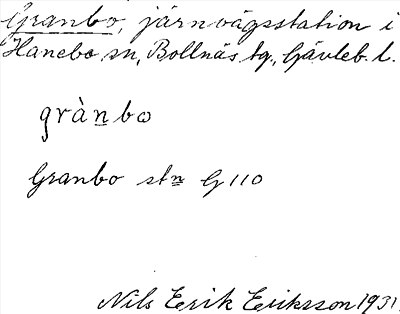 Granbo, järnvägsstation i
Hanebo sn, Bollnäs tg., Gävleb. l.
grànbω
Granbo stn G 110
Nils Erik Eriksson 1931.